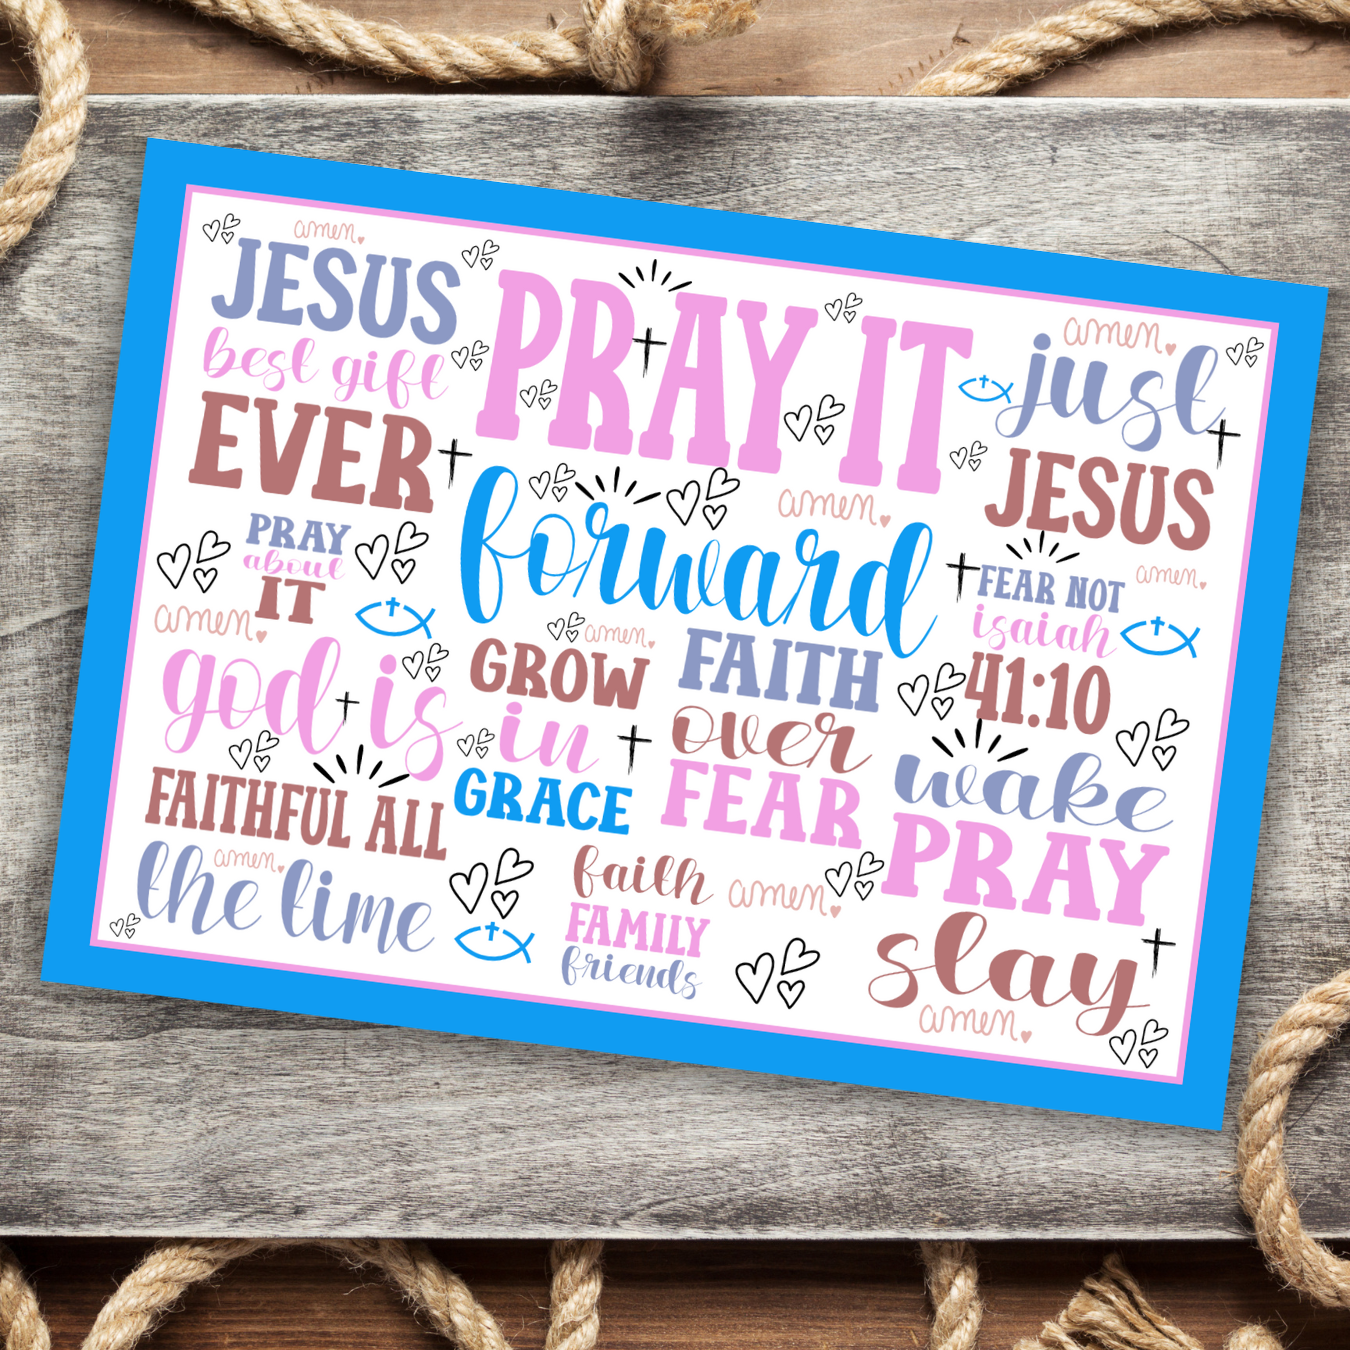 amen.
JESUS
best gift
EVER
PRAY IT
forward
amen.
amen.
just
JESUS
PRAY
about
IT
amen.
FEAR NOT
isaiah
41:10
amen.
god is
FAITHFUL ALL
amen.
the time
amen.
GROW
in
GRACE
FAITH
over
FEAR
wake
PRAY
slay
amen.
faith
FAMILY
friends
amen.